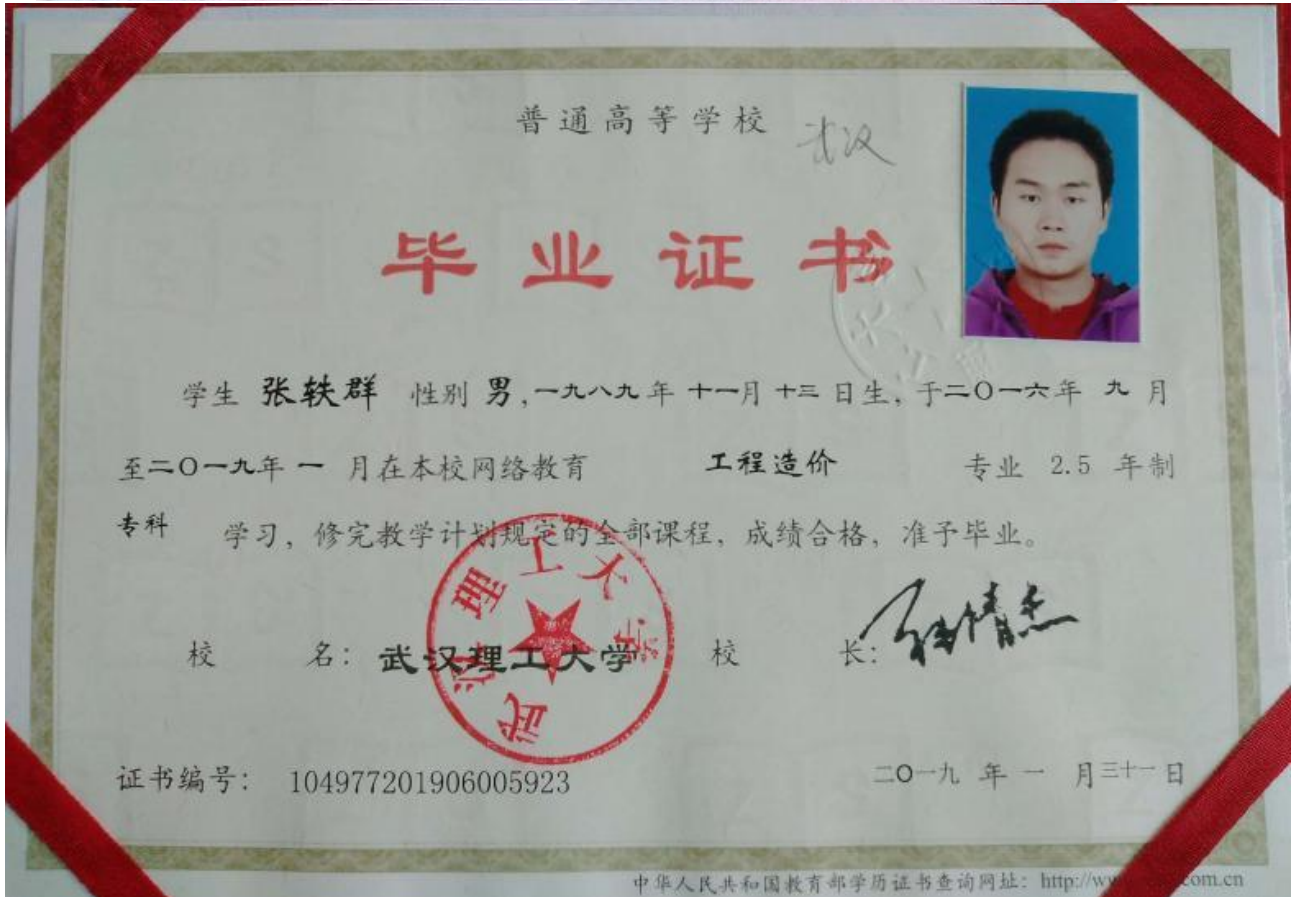 普通高等学校
武汉
毕业证书
学生 张轶群 性别 男,一九八九年 十一月 十三 日生, 于二〇一六年 九 月
至二〇一九年 一 月在本校网络教育 工程造价 专业 2.5 年制
专科 学习, 修完教学计划规定的全部课程, 成绩合格, 准予毕业。
武汉理工大学
校 名: 武汉理工大学 校 长:
证书编号: 104977201906005923 二〇一九 年 一 月三十一日
中华人民共和国教育部学历证书查询网址: http://
com.cn